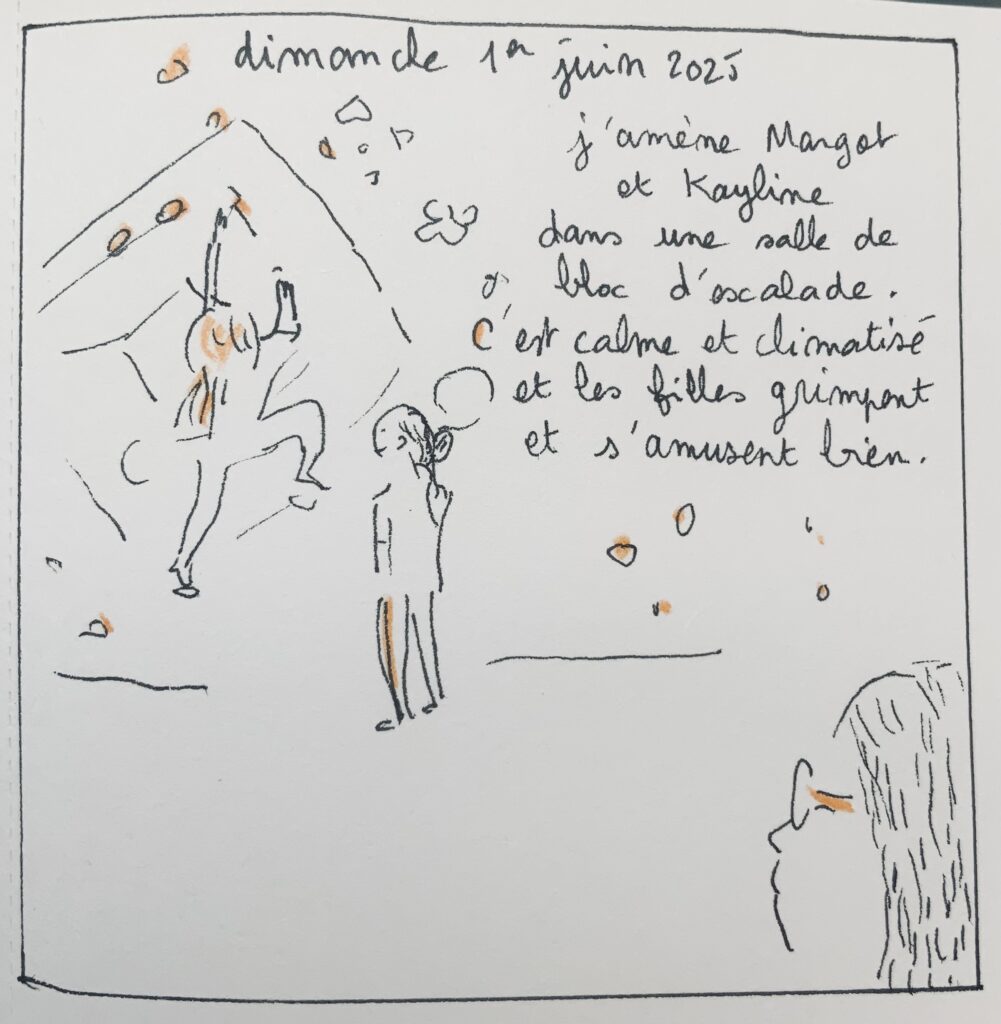 dimanche 1er juin 2025
j'amène Margot
et Kayline
dans une salle de
bloc d'escalade.
C'est calme et climatisé
et les filles grimpent
et s'amusent bien.